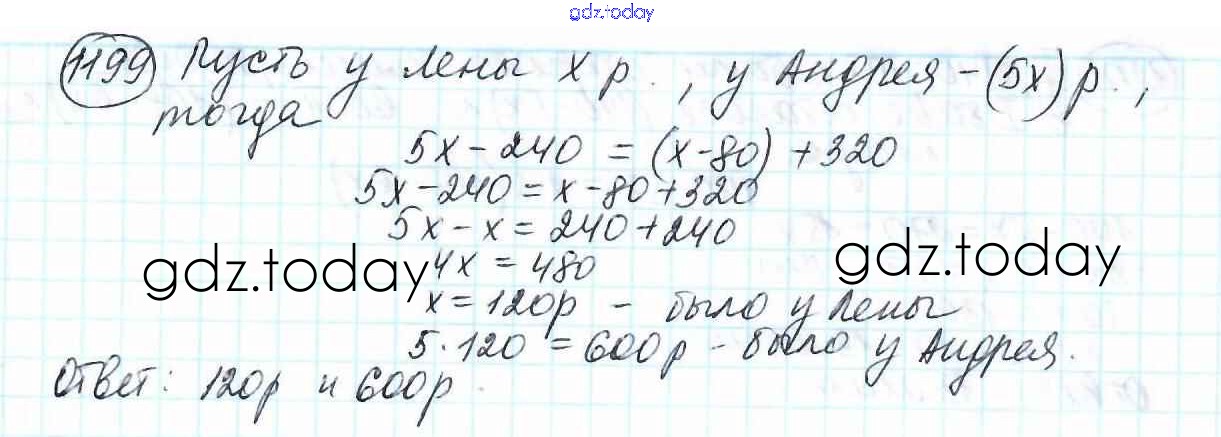 gdz.today
1199 Пусть у Лены x р., у Андрея - (5x) р.,
тогда
5x - 240 = (x - 80) + 320
5x - 240 = x - 80 + 320
5x - x = 240 + 240
4x = 480
gdz.today gdz.today
x = 120р - было у Лены
5 · 120 = 600р - было у Андрея.
Ответ: 120р и 600р.